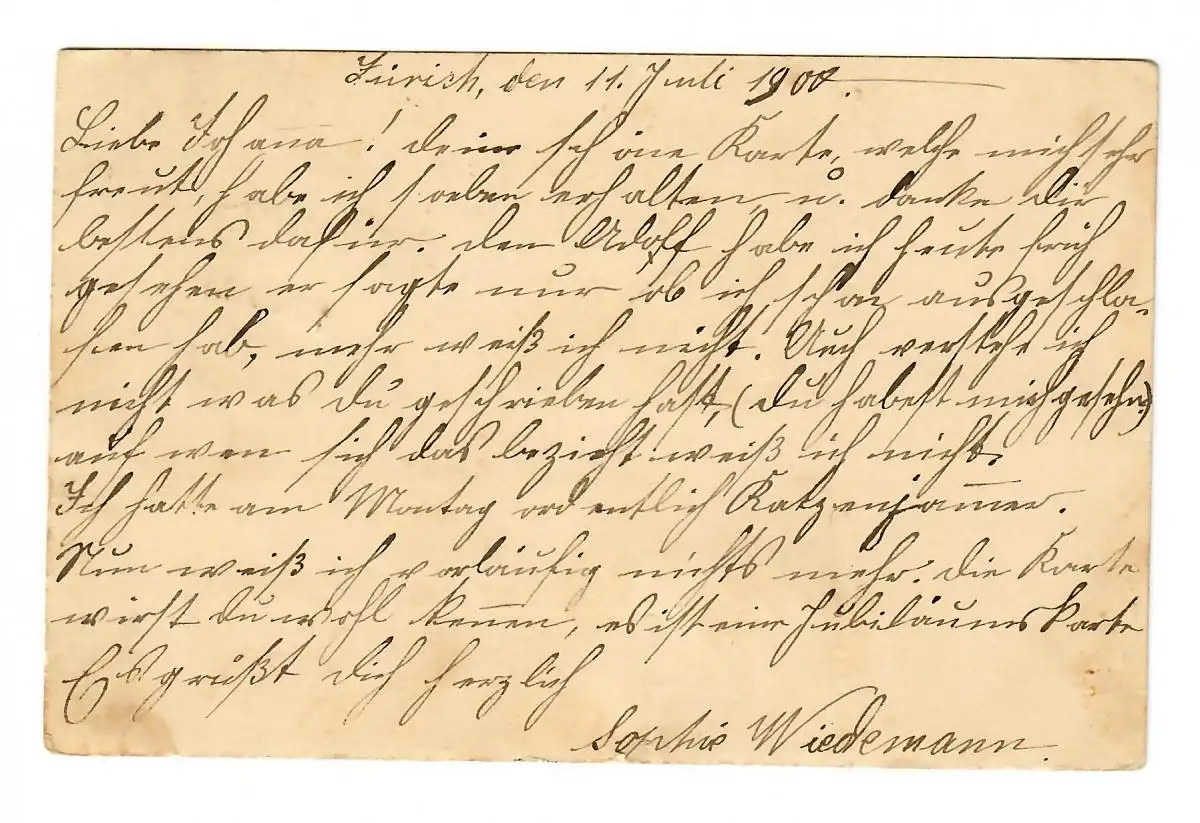 Zürich, den 11. Juli 1900.
Liebe Johanna! deine schöne Karte, welche mich sehr
freut, habe ich soeben erhalten, u. danke dir
bestens dafür. den Adolf habe ich heute früh
gesehen er sagte nur ob ich schon ausgeschla-
fen hab, mehr weiß ich nicht. Auch verstehe ich
nicht was du geschrieben hast, (du habest mich gesehn)
auf wen sich das bezieht weiß ich nicht.
Ich hatte am Montag ordentlich Katzenjam̅er.
Nun weiß ich vorläufig nichts mehr. die Karte
wirst du wohl ken̅en, es ist eine Jubiläums Karte
Es grüßt dich herzlich
Sophie Wiedemann.